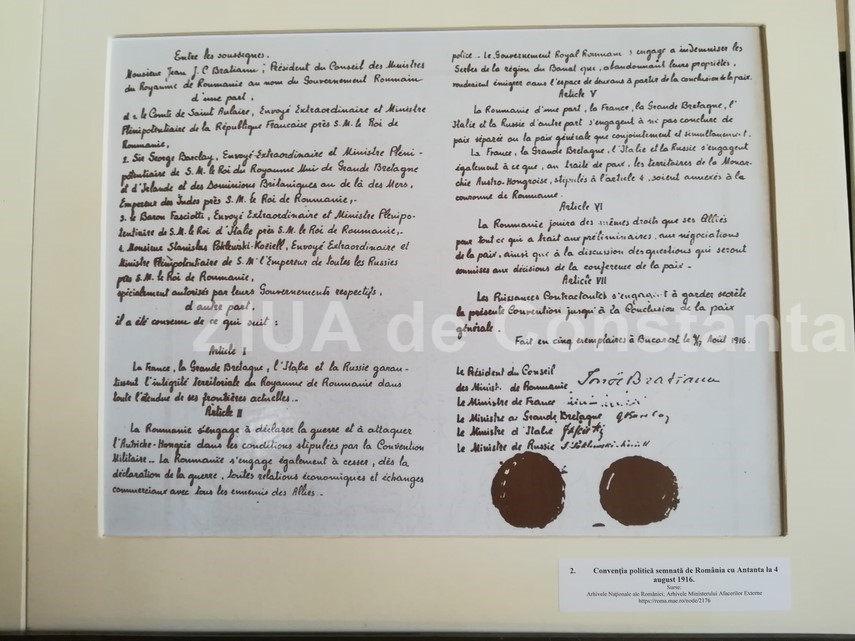 Entre les soussignes.
Monsieur Jean J. C Bratianu ; Président du Conseil des Ministres
du Royaume de Roumanie au nom du Gouvernement Roumain
d'une part,
le Comte de Saint Aulaire, Envoyé Extraordinaire et Ministre
Plénipotentiaire de la République Francaise près S.M. le Roi de
Roumanie,
2. Sir George Barclay, Envoyé Extraordinaire et Ministre Pleni-
potentiaire de S.M. le Roi du Royaume Uni de Grande Bretagne
et d'Irlande et des Dominions Britaniques au de là des Mers,
Empereur des Indes près S.M. le Roi de Roumanie,.-
3. le Baron Fasciotti, Envoyé Extraordinaire et Ministre Plénipo-
tentiaire de S.M. le Roi d'Italie près S.M. le Roi de Roumanie,.-
Monsieur Stanislas Poklewski-Koziell, Envoyé Extraordinaire et
Ministre Plénipotentiaire de S.M. l'Empereur de toutes les Russies
près S.M. le Roi de Roumanie,
spécialement autorisés par leurs Gouvernements respectifs,
d'autre part,
il a été convenu de ce qui suit :
Article I
La France, la Grande Bretagne, l'Italie et la Russie garan-
tissent l'intégrité territoriale du Royaume de Roumanie dans
toute l'étendue de ses frontières actuelles..
Article II
La Roumanie s'engage à déclarer la guerre et à attaquer
l'Autriche-Hongrie dans les conditions stipulées par la Convention
Militaire.. La Roumanie s'engage également à cesser, dès la
déclaration de la guerre, toutes relations économiques et échanges
commerciaux avec tous les ennemis des Alliés..
police.. Le Gouvernement Royal Roumain s'engage a indemniser les
Serbes de la région du Banat que, abandonnant leurs propriétés,
voudraient émigrer dans l'espace de deux ans à partir de la conclusion de la paix.
Article V
La Roumanie d'une part, la France, la Grande Bretagne, l'
Italie et la Russie d'autre part s'engagent à ne pas conclure de
paix séparée ou la paix générale que conjointement et simultanement.
La France, la Grande Bretagne, l'Italie et la Russie s'engagent
également à ce que, au traité de paix, les territoires de la Monar-
chie Austro-Hongroise, stipulés à l'article 4, soient annexés à la
couronne de Roumanie.
Article VI
La Roumanie jouira des mêmes droits que ses Alliés
pour tout ce qui a trait aux préliminaires, aux négociations
de la paix, ainsi que à la discussion des questions qui seront
soumises aux décisions de la conference de la paix -
Article VII
Les Puissances Contractantes s'engagent à garder secrète
la présente Convention jusqu'à la Conclusion de la paix
générale.
Fait en cinq exemplaires à Bucarest le 4/17 Août 1916.
Le Président du Conseil
des Minist. de Roumanie Ion Bratianu
Le Ministre de France
Le Ministre de Grande Bretagne
Le Ministre d'Italie
Le Ministre de Russie
ZIUA de Constanta
2. Convenția politică semnată de România cu Antanta la 4
august 1916.
Surse:
Arhivele Naționale ale României; Arhivele Ministerului Afacerilor Externe
https://roma.mae.ro/node/2176